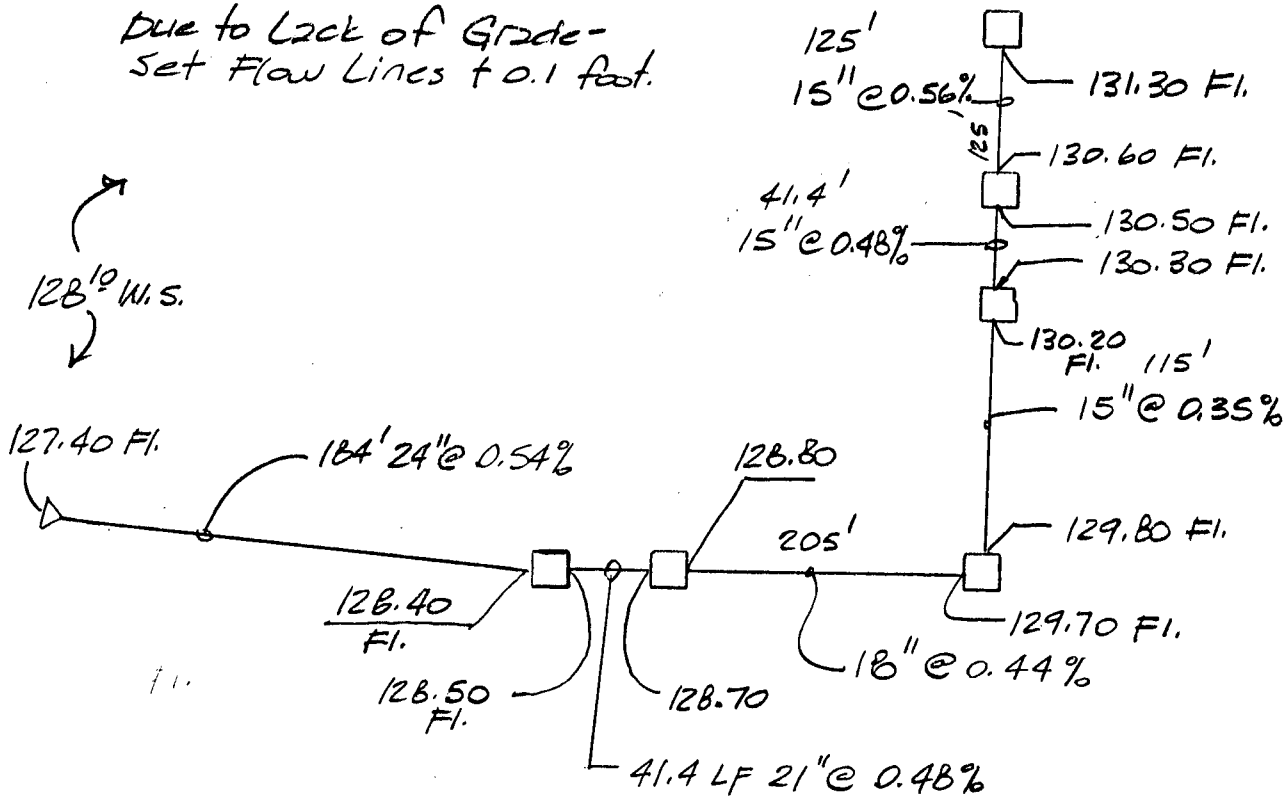 Due to Lack of Grade-
Set Flow Lines + 0.1 foot.
125'
15" @ 0.56%
125'
131.30 Fl.
130.60 Fl.
41.4'
15" @ 0.48%
130.50 Fl.
130.30 Fl.
128¹⁰ W.S.
130.20
Fl.
115'
15" @ 0.35%
127.40 Fl.
184' 24" @ 0.54%
128.80
205'
129.80 Fl.
128.40
Fl.
129.70 Fl.
18" @ 0.44%
128.50
Fl.
128.70
41.4 LF 21" @ 0.48%